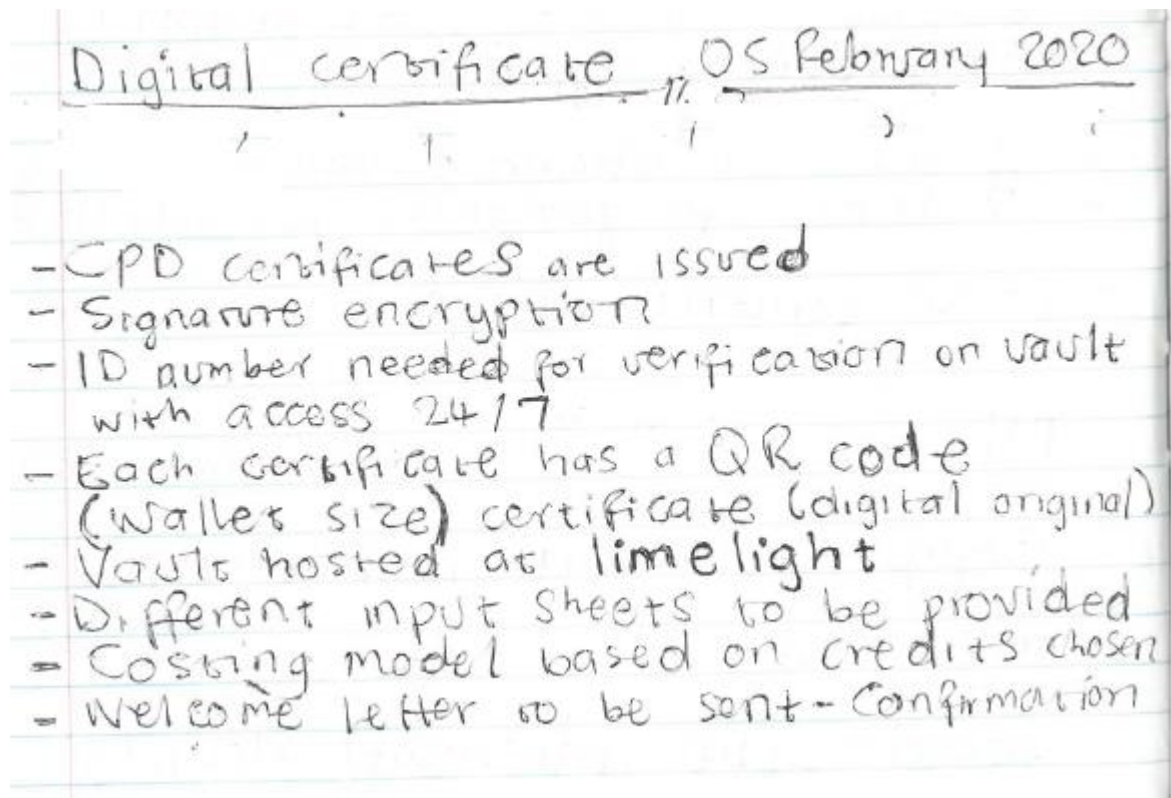 Digital certificate 05 February 2020
- CPD certificates are issued
- Signature encryption
- ID number needed for verification on vault
with access 24/7
- Each certificate has a QR code
(wallet size) certificate (digital original)
- Vault hosted at limelight
- Different input sheets to be provided
- Costing model based on credits chosen
- Welcome letter to be sent - Confirmation